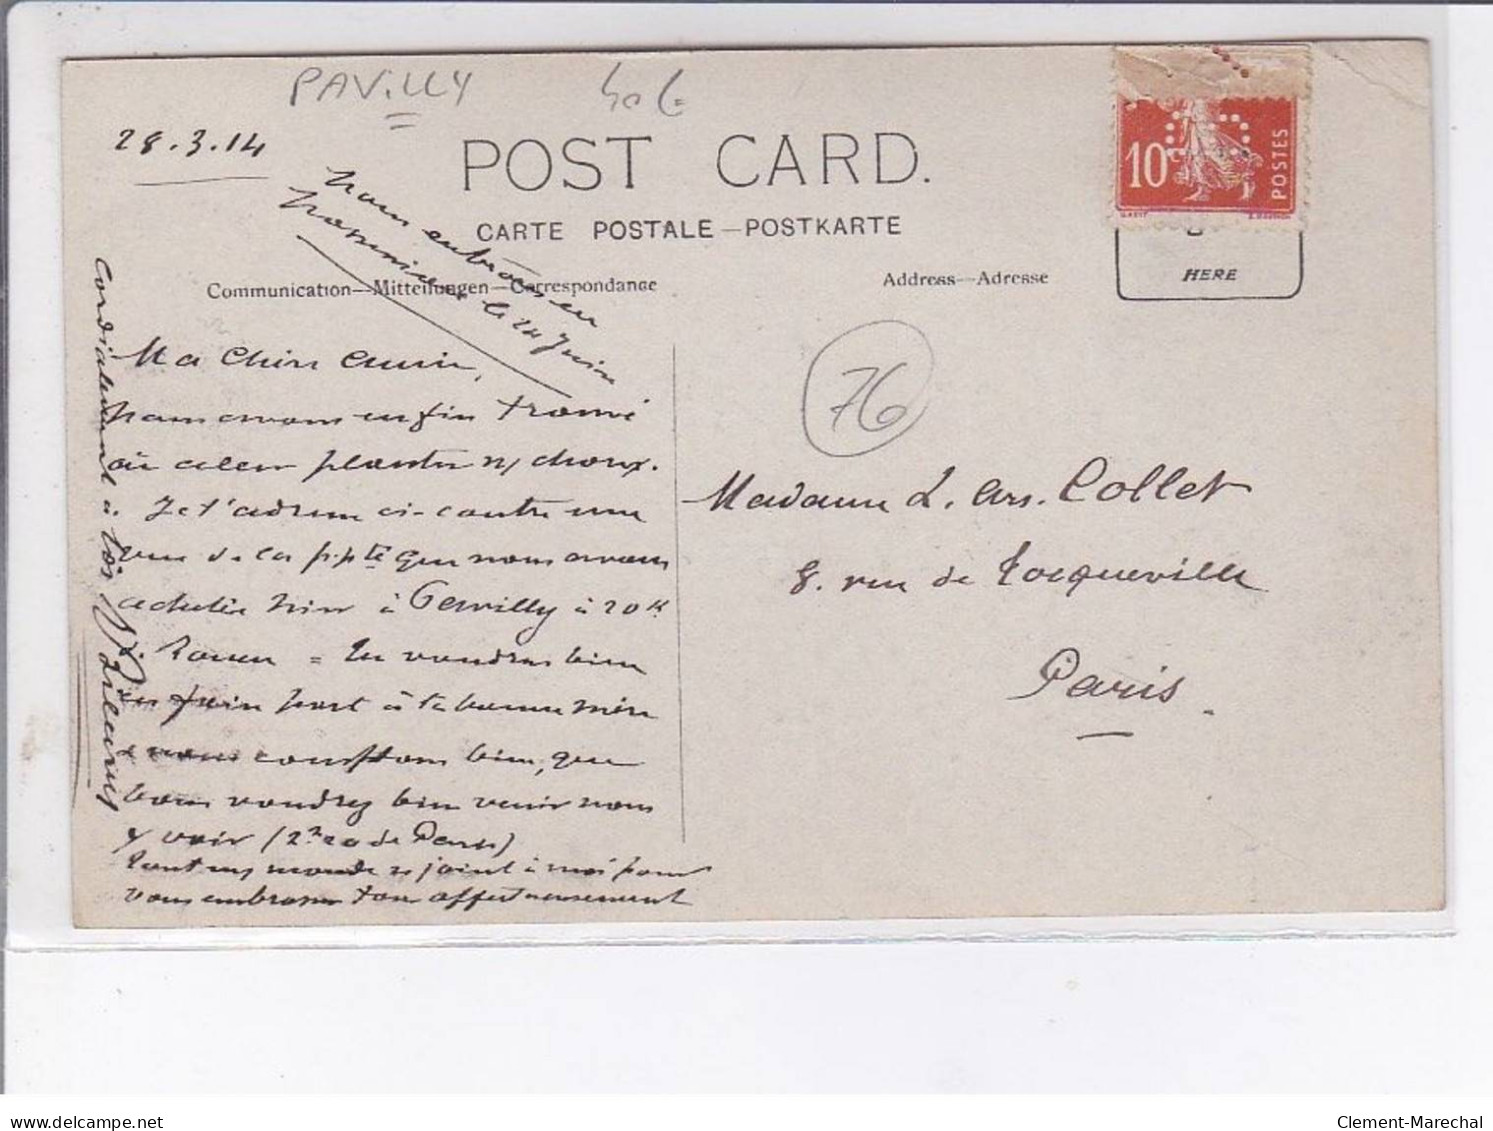 PAVILLY
28.3.14
POST CARD.
CARTE POSTALE—POSTKARTE
Communication—Mitteilungen—Correspondance
Address—Adresse
10c
POSTES
HERE
76
nous entrons en
possession le 24 Juin
Ma Chère amie,
nous avons enfin trouvé
où aller planter nos choux.
Je t'adresse ci-contre une
vue de la ppté que nous avons
achetée hier à Pavilly à 20 K
de Rouen = tu voudras bien
en faire part à ta bonne mère
& nous comptons bien, que
vous voudrez bien venir nous
y voir (2h20 de Paris)
Tout mon monde se joint à moi pour
vous embrasser ton affectueusement
cordialement à toi
Madame L. Ars. Collet
8. rue de Tocqueville
Paris
delcampe.net
Clement-Marechal